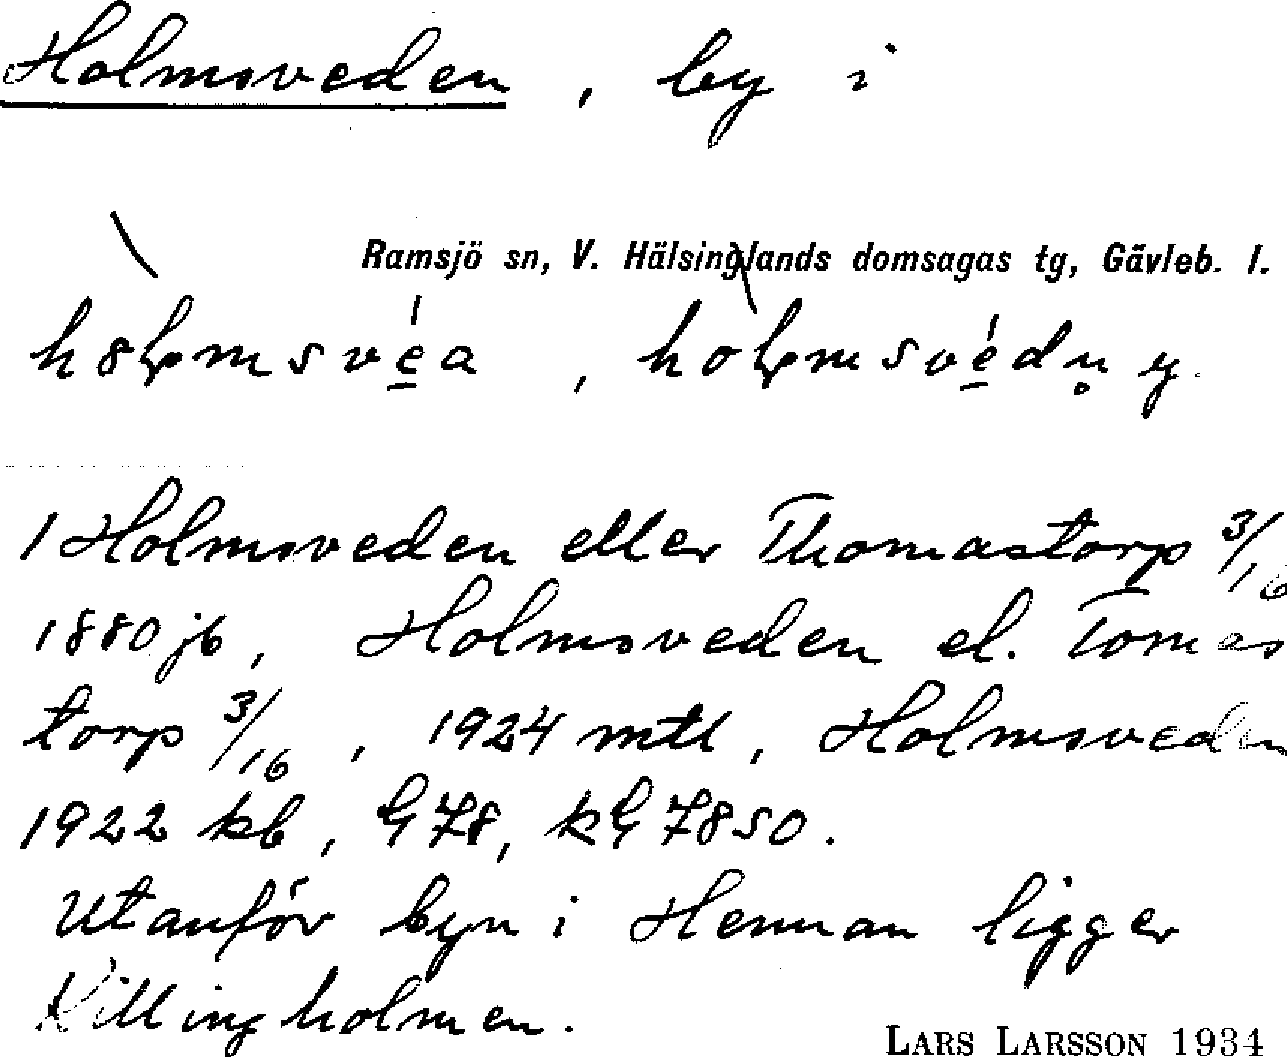 Holmsveden, by i
Ramsjö sn, V. Hälsinglands domsagas tg, Gävleb. l.
1 Holmsveden eller Thomastorp 3/16
1880 jb, Holmsveden el. Tomas
torp 3/16, 1924 mtl, Holmsveden
1922 kb, G 78, kG 7850.
Utanför byn i Hennan ligger
Killingholmen.
LARS LARSSON 1934